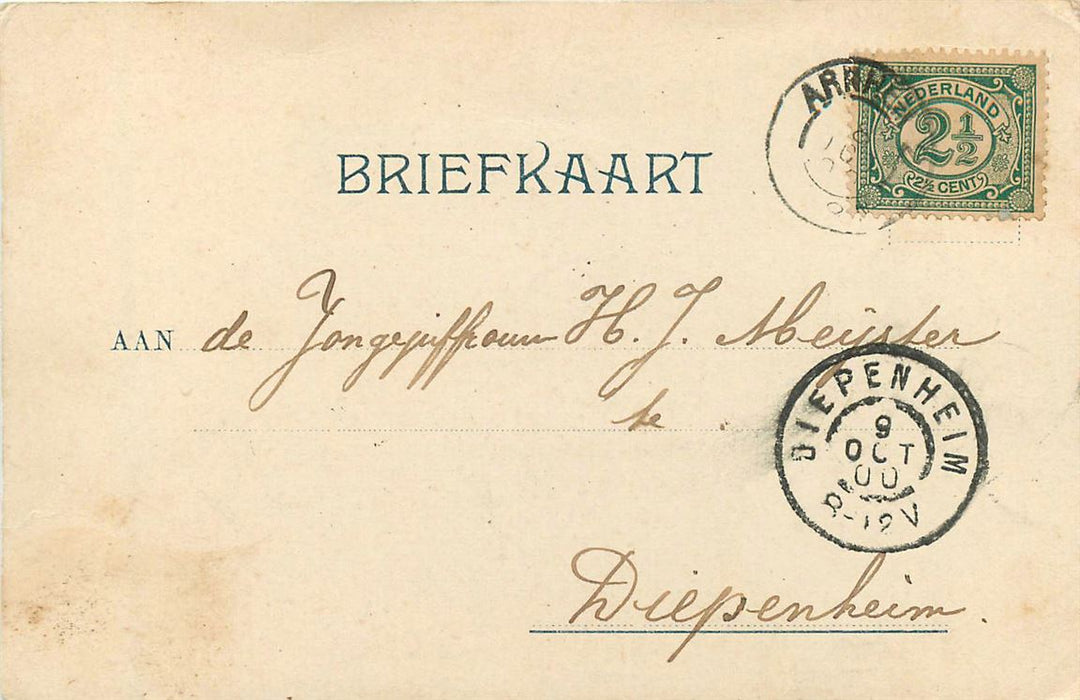 BRIEFKAART
NEDERLAND
2½
2½ CENT
AAN de Jongejuffrouw H. J. Meijster
te
DIEPENHEIM
9
OCT
00
8-12V
Diepenheim.